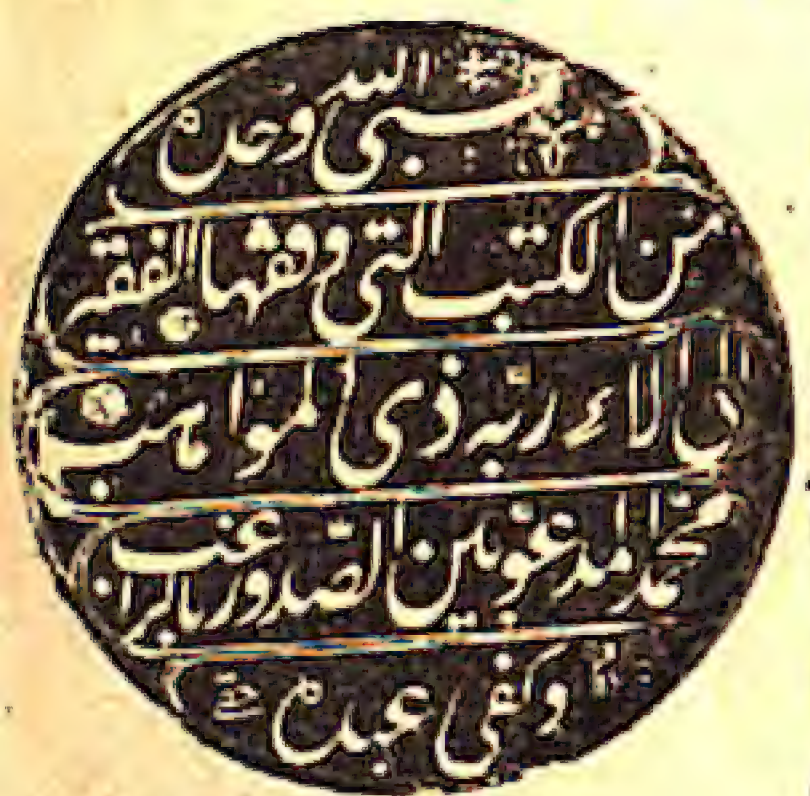 حسبي الله وحده
من الكتب التي وقفها الفقير
الى الاء ربه ذي المواهب
محمد المدعو بين الصدور بالراغب
وكفى عبده